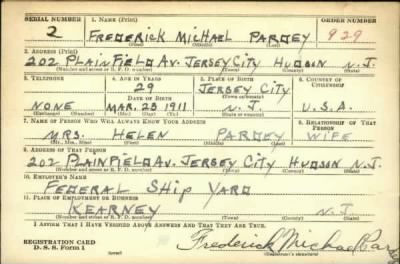 SERIAL NUMBER 1. NAME (Print) ORDER NUMBER
2 FREDERICK MICHAEL PARDEY 929
(First) (Middle) (Last)
2. ADDRESS (Print)
202 PLAINFIELD AV. JERSEY CITY HUDSON N.J.
(Number and street or R. F. D. number) (Town) (County) (State)
3. TELEPHONE 4. AGE IN YEARS 5. PLACE OF BIRTH 6. COUNTRY OF CITIZENSHIP
29 JERSEY CITY
DATE OF BIRTH (Town or county)
NONE MAR. 23 1911 N.J. U.S.A.
(Exchange) (Number) (Mo.) (Day) (Yr.) (State or country)
7. NAME OF PERSON WHO WILL ALWAYS KNOW YOUR ADDRESS 8. RELATIONSHIP OF THAT PERSON
MRS. HELEN PARDEY WIFE
(Mr., Mrs., Miss) (First) (Middle) (Last)
9. ADDRESS OF THAT PERSON
202 PLAINFIELD AV. JERSEY CITY HUDSON N.J.
(Number and street or R. F. D. number) (Town) (County) (State)
10. EMPLOYER'S NAME
FEDERAL SHIP YARD
11. PLACE OF EMPLOYMENT OR BUSINESS
KEARNEY N.J.
(Number and street or R. F. D. number) (Town) (County) (State)
I AFFIRM THAT I HAVE VERIFIED ABOVE ANSWERS AND THAT THEY ARE TRUE.
REGISTRATION CARD
D. S. S. Form 1 Frederick Michael
(Registrant's signature)